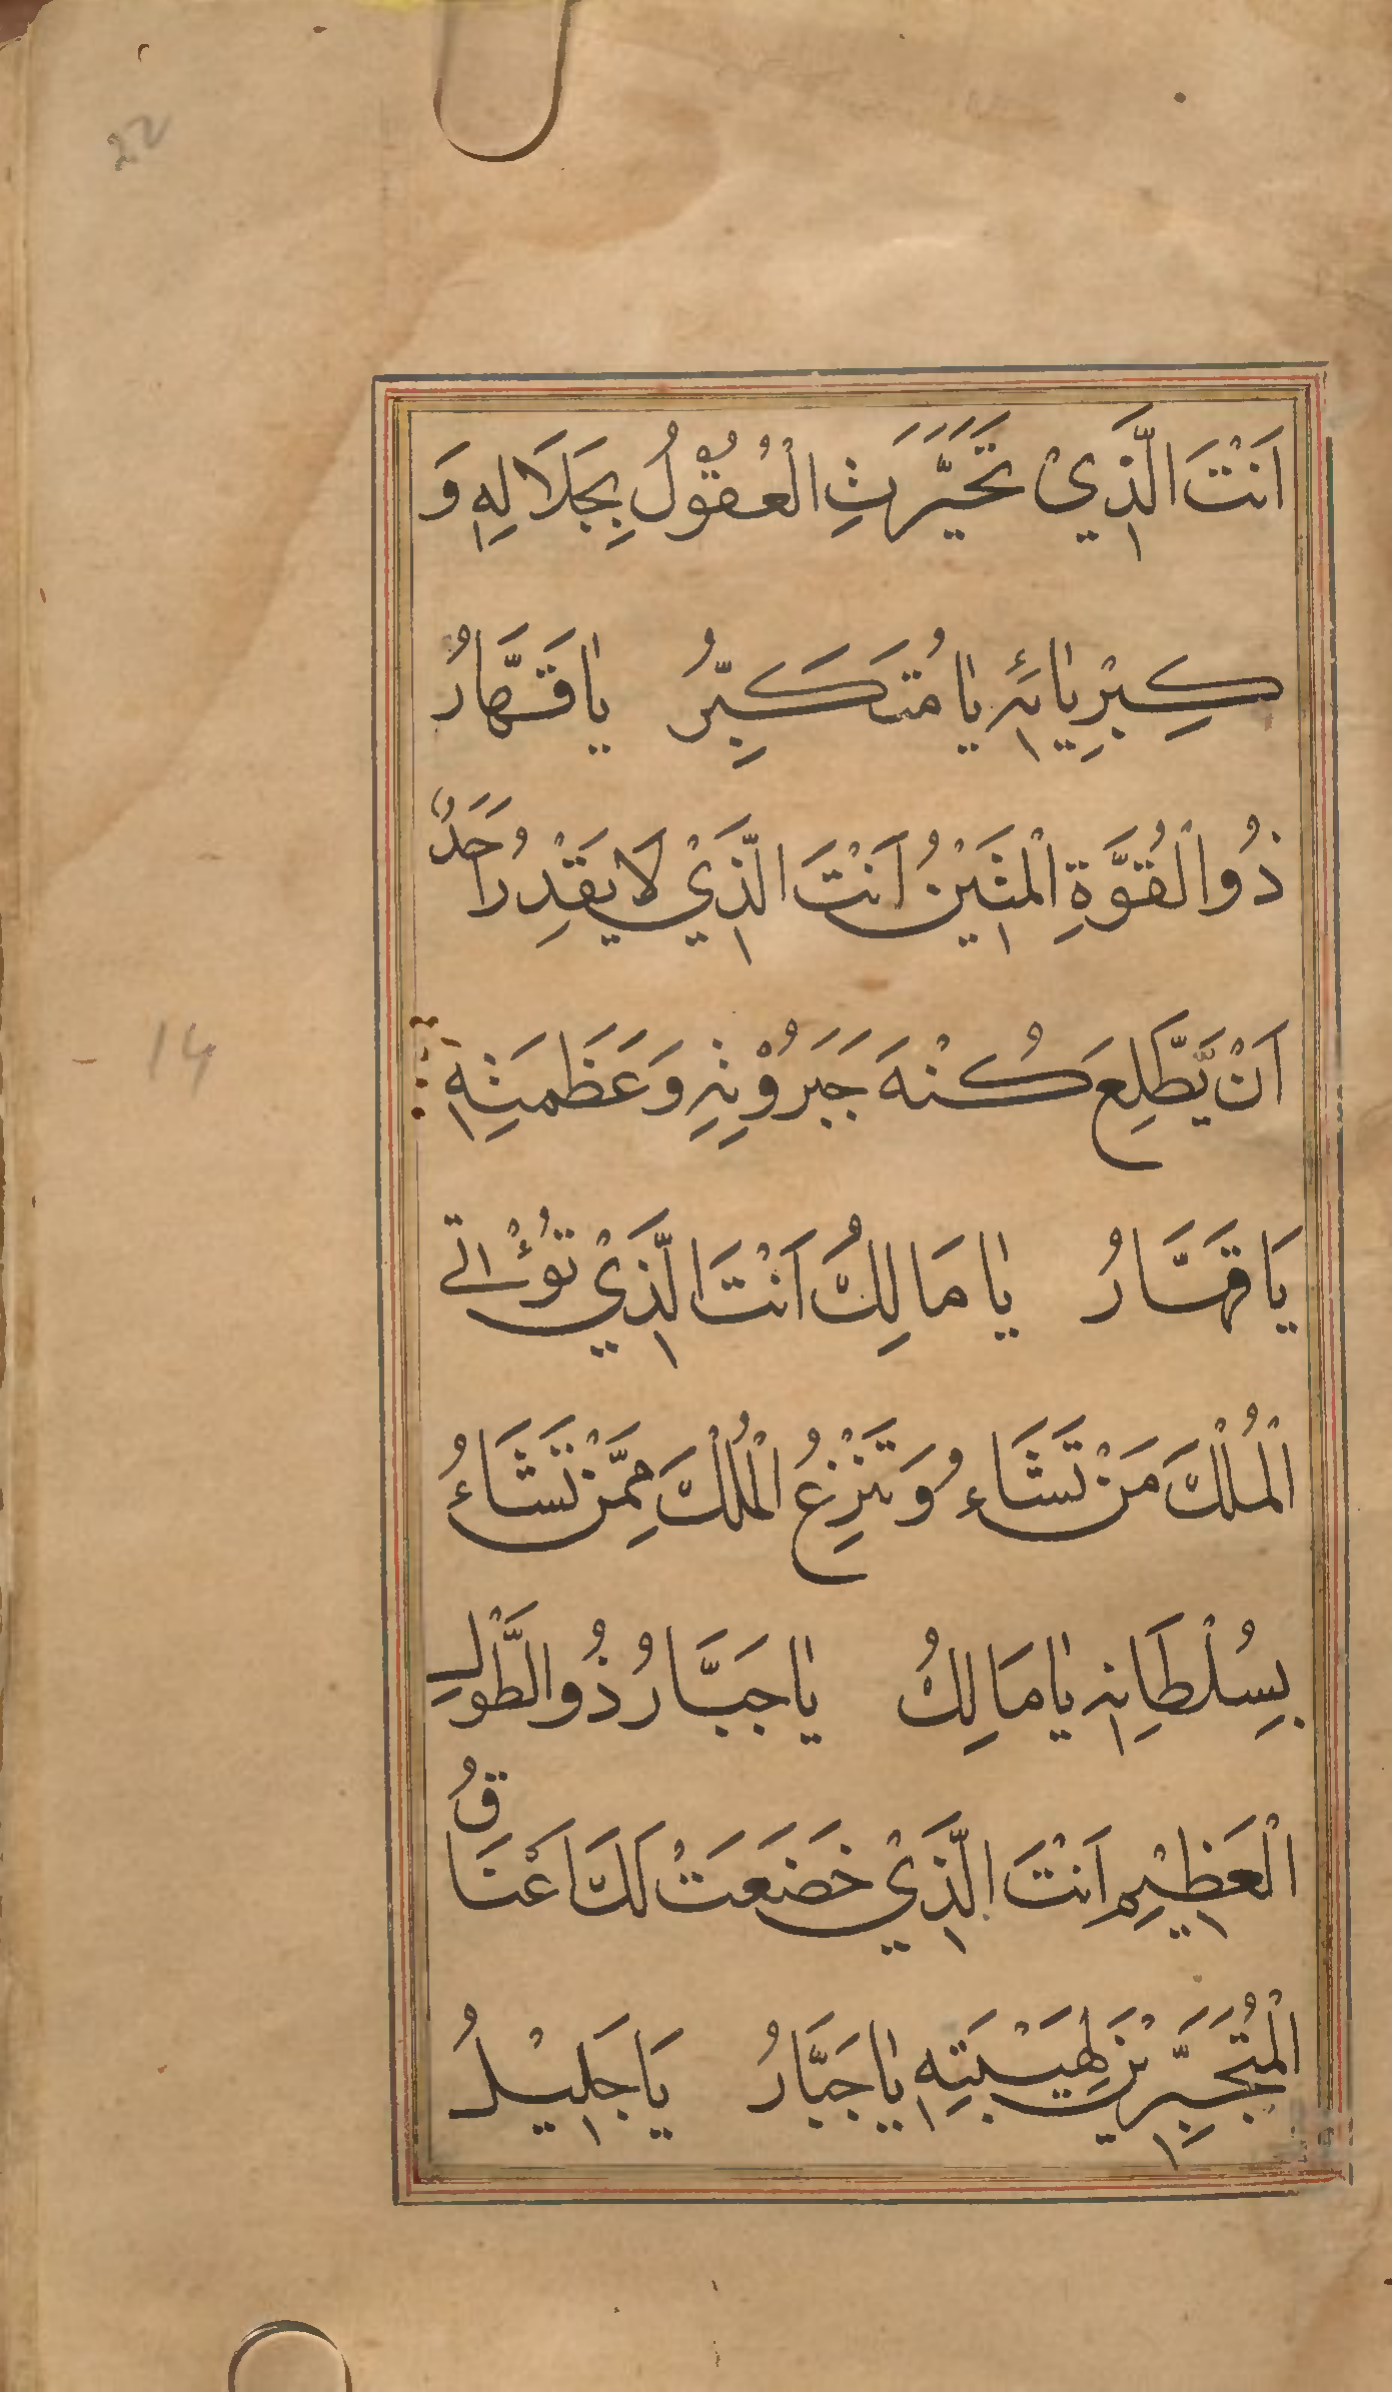 22
اَنْتَ الَّذِيْ تَحَيَّرَتِ الْعُقُوْلُ بِجَلَالِهٖ وَ
كِبْرِيٰائِهٖ يٰا مُتَكَبِّرُ يٰا قَهَّارُ
ذُوالْقُوَّةِ الْمَتِيْنُ اَنْتَ الَّذِيْ لَا يَقْدِرُ اَحَدٌ
اَنْ يَّطَّلِعَ كُنْهَ جَبَرُوْتِهٖ وَعَظَمَتِهٖ
14
يَا قَهَّارُ يٰا مَالِكُ اَنْتَ الَّذِيْ تُؤْتِى
الْمُلْكَ مَنْ تَشَاءُ وَتَنْزِعُ الْمُلْكَ مِمَّنْ تَشَاءُ
بِسُلْطَانِهٖ يٰا مَالِكُ يٰا جَبَّارُ ذُوالطَّوْلِ
الْعَظِيْمِ اَنْتَ الَّذِيْ خَضَعَتْ لَكَ اَعْنَاقُ
الْمُتَجَبِّرِيْنَ لِهَيْبَتِهٖ يٰا جَبَّارُ يَا جَلِيْلُ